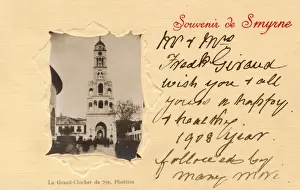 Souvenir de Smyrne
Mr & Mrs
Fredk Giraud
wish you & all
yours a happy
& healthy
1908 year
followed by
many more.
Le Grand-Clocher de Ste. Photinie